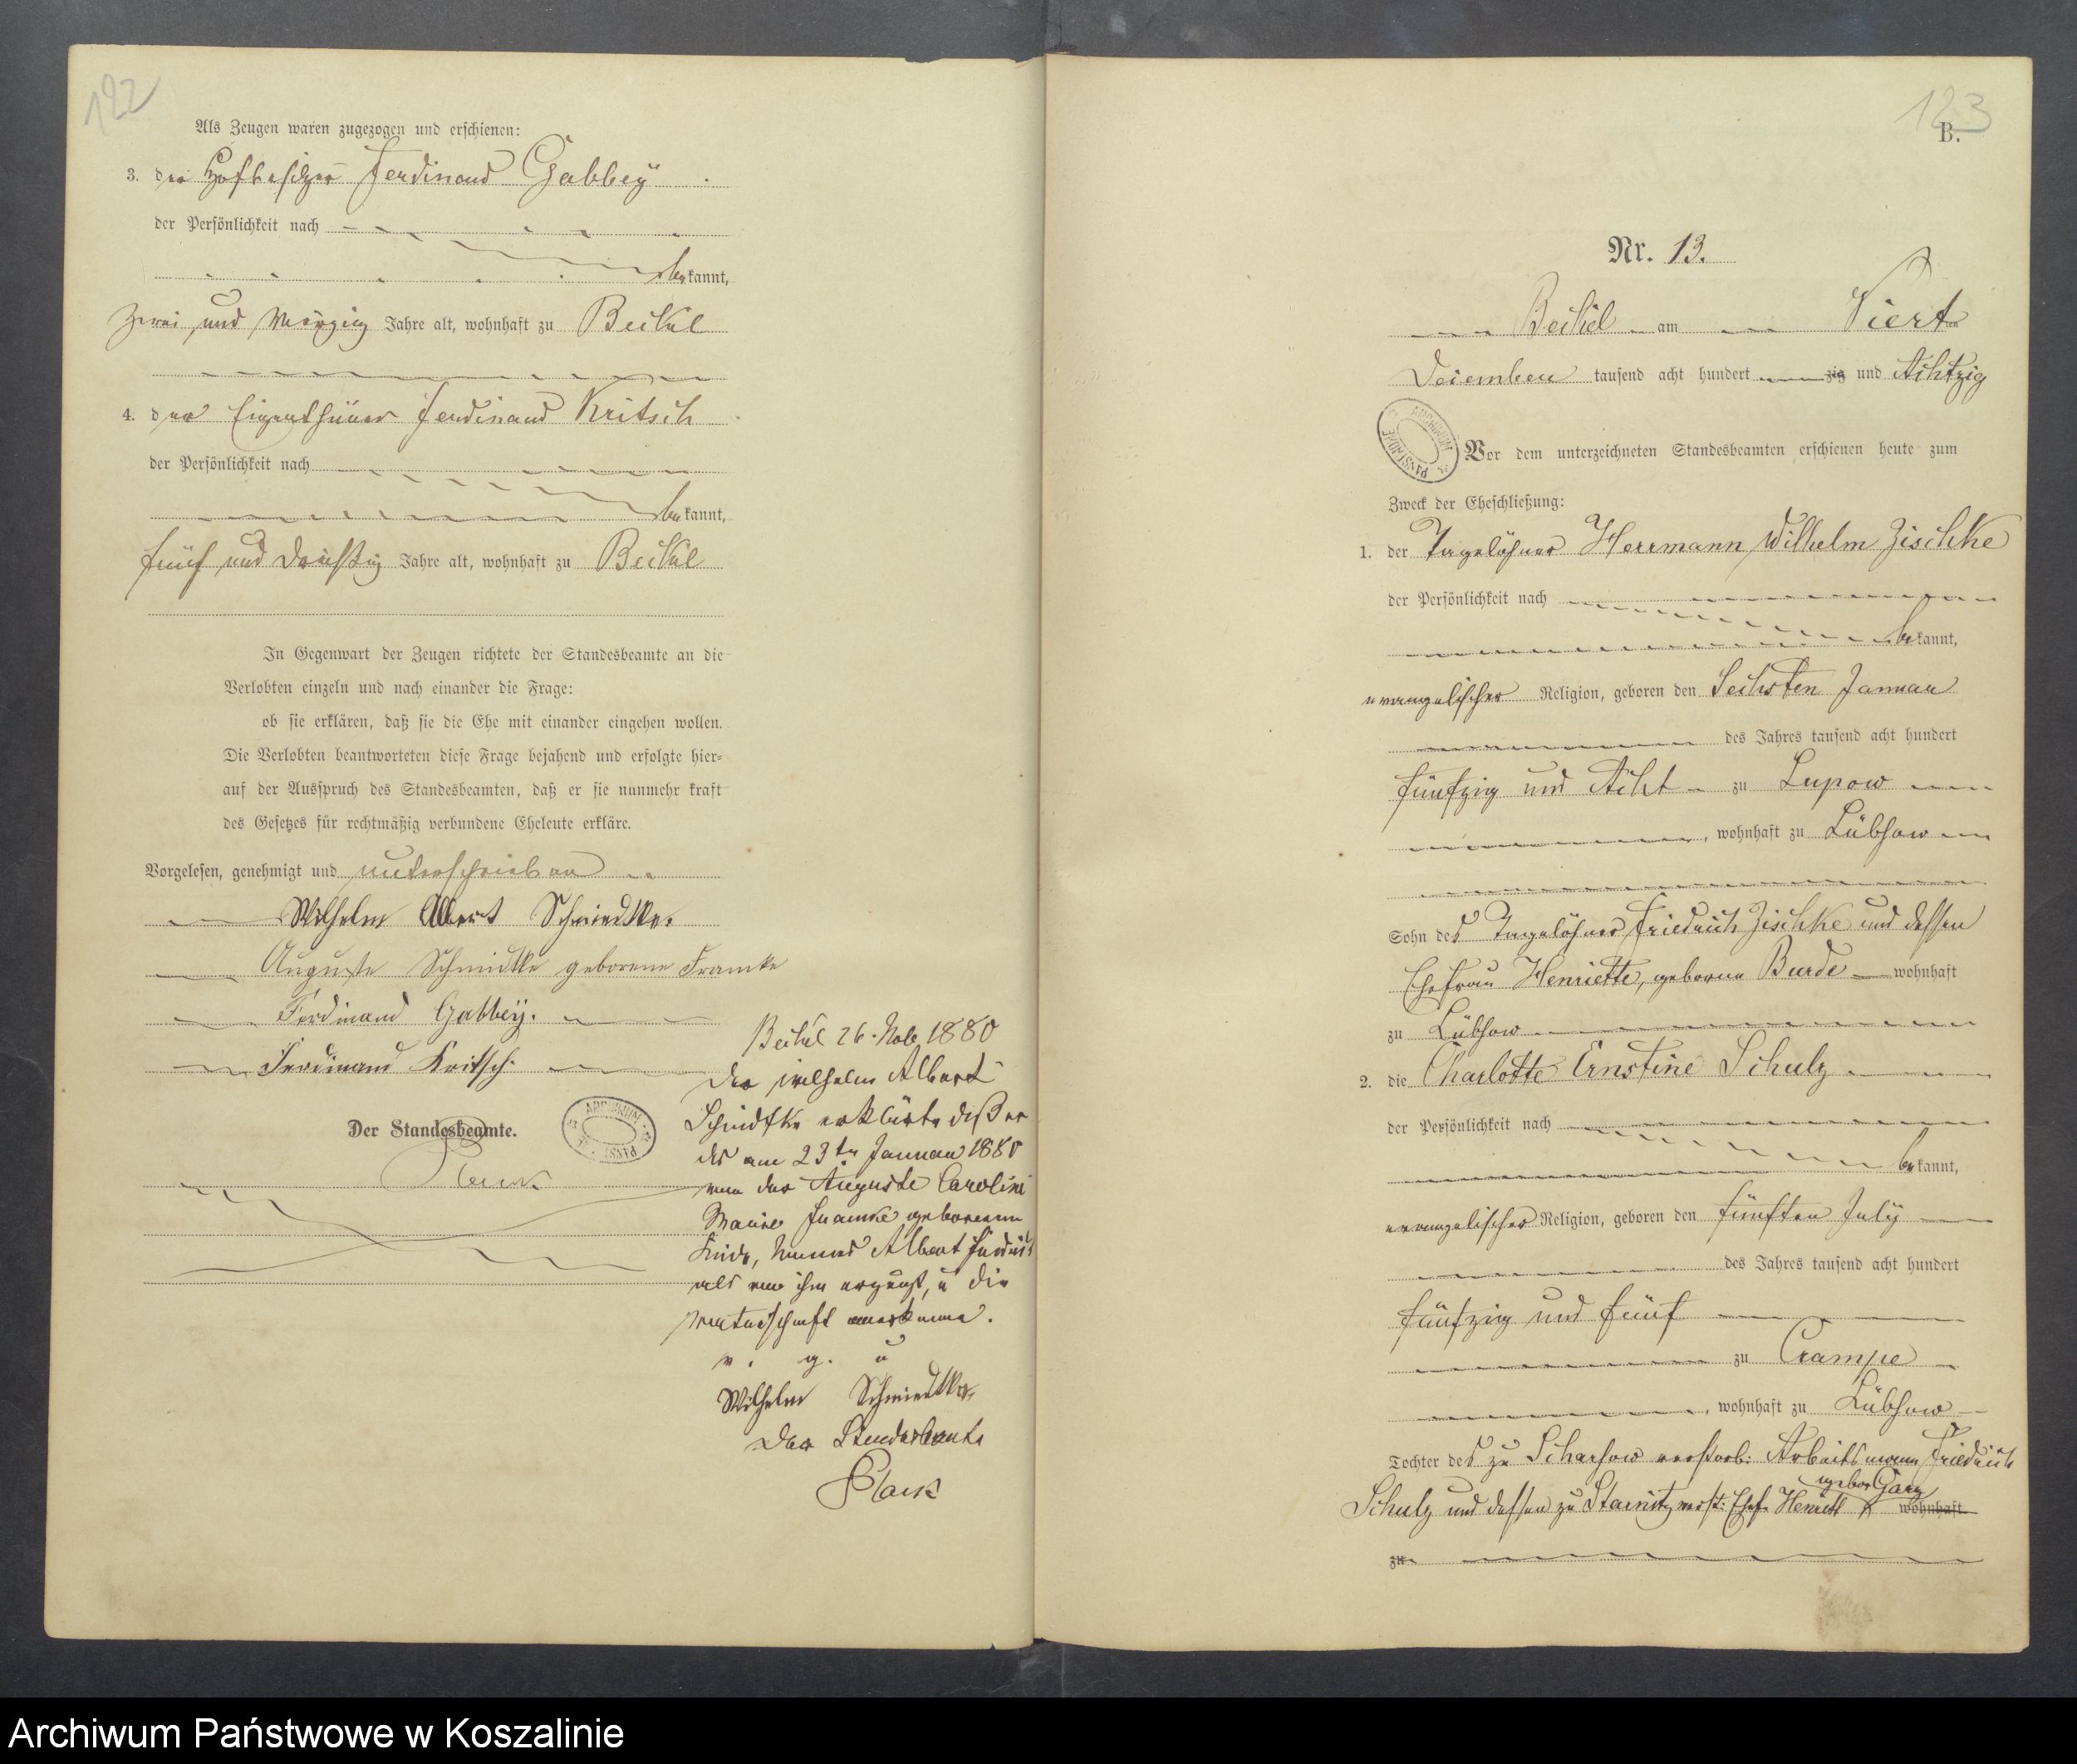 122
Als Zeugen waren zugezogen und erschienen:
3. der Hofbesitzer Ferdinand Gabbey
der Persönlichkeit nach
bekannt,
zwei und vierzig Jahre alt, wohnhaft zu Beckel
4. der Eigenthümer Ferdinand Kritsch
der Persönlichkeit nach
bekannt,
fünf und dreißig Jahre alt, wohnhaft zu Beckel
In Gegenwart der Zeugen richtete der Standesbeamte an die
Verlobten einzeln und nach einander die Frage:
ob sie erklären, daß sie die Ehe mit einander eingehen wollen.
Die Verlobten beantworteten diese Frage bejahend und erfolgte hier=
auf der Ausspruch des Standesbeamten, daß er sie nunmehr kraft
des Gesetzes für rechtmäßig verbundene Eheleute erkläre.
Vorgelesen, genehmigt und unterschrieben
Wilhelm Albert Schmiedtke.
Auguste Schmidtke geborene Framke
Ferdinand Gabbey.
Ferdinand Kritsch.
Der Standesbeamte.
Beckel 26. Nov. 1880
Der Wilhelm Albert
Schmidtke erklärte daß er
das am 23ten Januar 1880
von der Auguste Caroline
Framke geborenen
Kinde, Namens Albert
als von ihm erzeugt, u die
Vaterschaft anerkenne.
v. g. u
Wilhelm Schmiedtke
Der Standesbeamte
123
B.
Nr. 13.
Beckel am Vierten
Dezember tausend acht hundert zig und Achtzig
Vor dem unterzeichneten Standesbeamten erschienen heute zum
Zweck der Eheschließung:
1. der Tagelöhner Herrmann Wilhelm Zischke
der Persönlichkeit nach
bekannt,
evangelischer Religion, geboren den Sechsten Januar
des Jahres tausend acht hundert
fünfzig und Acht zu Lupow
, wohnhaft zu Lübzow
Sohn des Tagelöhner Friedrich Zischke und dessen
Ehefrau Henriette, geborne Burde wohnhaft
zu Lübzow
2. die Charlotte Ernstine Schulz
der Persönlichkeit nach
bekannt,
evangelischer Religion, geboren den fünften July
des Jahres tausend acht hundert
fünfzig und fünf
zu Crampe
, wohnhaft zu Lübzow
Tochter des zu Scharsow verstorb: Arbeitsmann Friedrich
gebor
Schulz und dessen zu Starnitz verst: Ehef. wohnhaft
zu
Archiwum Państwowe w Koszalinie